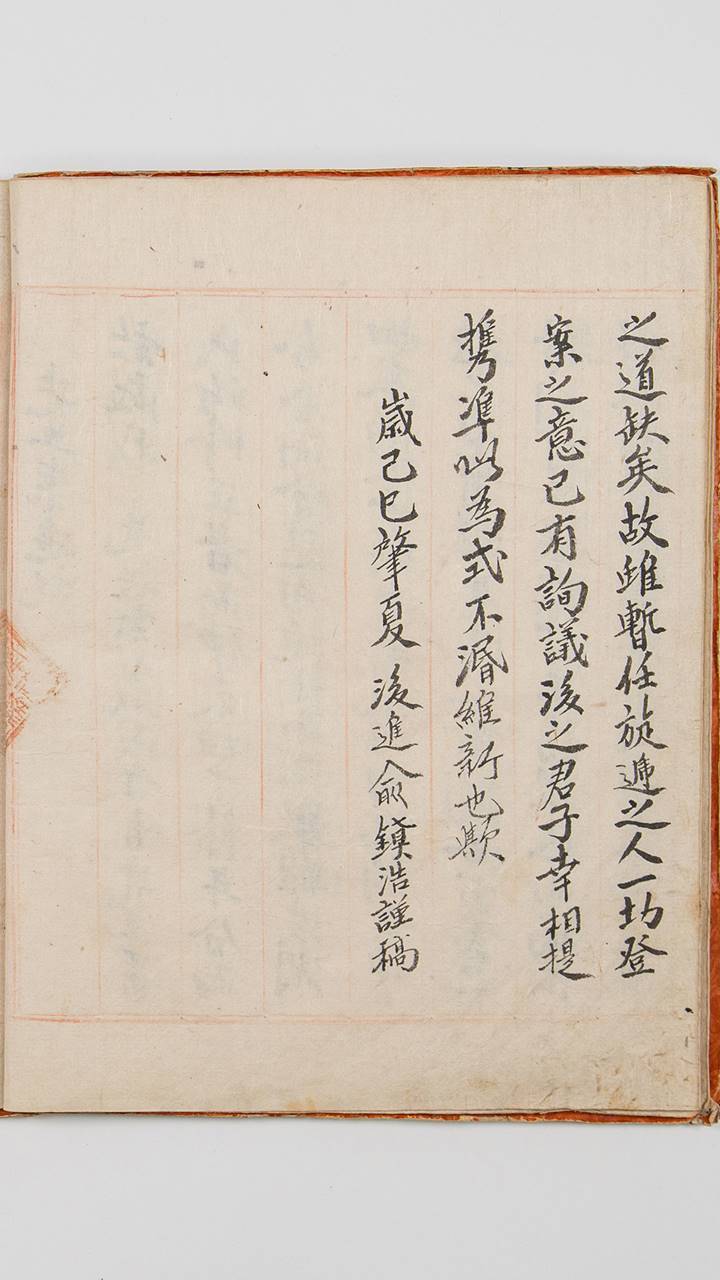 之道缺矣故雖暫任旋遞之人一切登
案之意已有詢議後之君子幸相提
携準以為式不湣維新也歟
歲己巳肇夏 後進俞鎮浩謹稿